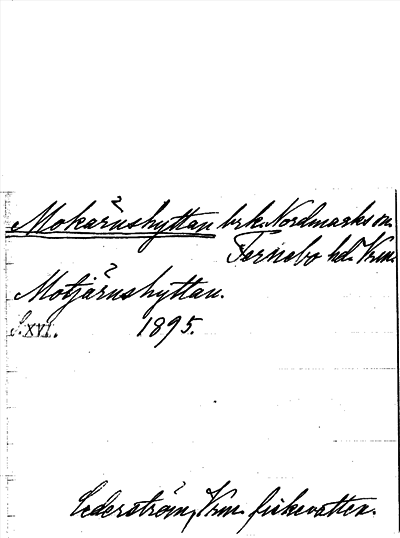 Mokärnshyttan brk. Nordmarks sn.
Fernebo hd. Vrm.
Motjärnshyttan.
S. XVI. 1895.
Cederström, Vrm. fiskevatten.